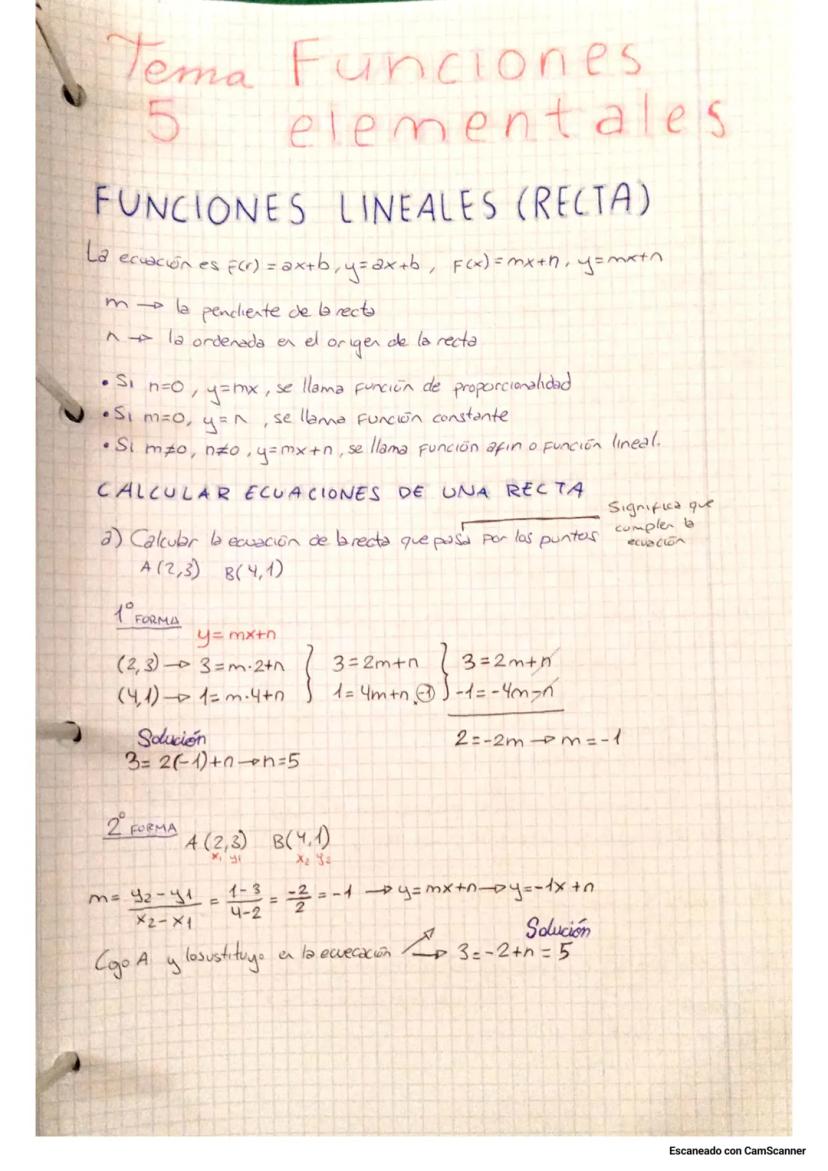 Tema Funciones
5 elementales
FUNCIONES LINEALES (RECTA)
La ecuación es F(r) = ax+b, y=ax+b, F(x)=mx+n, y=mx+n
m → la pendiente de la recta
n → la ordenada en el origen de la recta
• Si n=0, y=mx, se llama función de proporcionalidad
• Si m=0, y=n, se llama función constante
• Si m≠0, n≠0, y=mx+n, se llama función afin o función lineal.
CALCULAR ECUACIONES DE UNA RECTA
Significa que
cumplen la
ecuación
a) Calcular la ecuación de la recta que pasa por los puntos
A(2,3) B(4,1)
1º FORMA
y=mx+n
(2,3) → 3=m·2+n } 3=2m+n } 3=2m+n
(4,1) → 1=m·4+n } 1=4m+n·(-1) } -1=-4m-n
Solución 2=-2m → m=-1
3=2(-1)+n → n=5
2º FORMA A(2,3) B(4,1)
x1 y1 x2 y2
m= y2-y1 / x2-x1 = 1-3 / 4-2 = -2 / 2 = -1 → y=mx+n → y=-1x+n
Solución
Cojo A y lo sustituyo en la ecuecación → 3=-2+n = 5
Escaneado con CamScanner